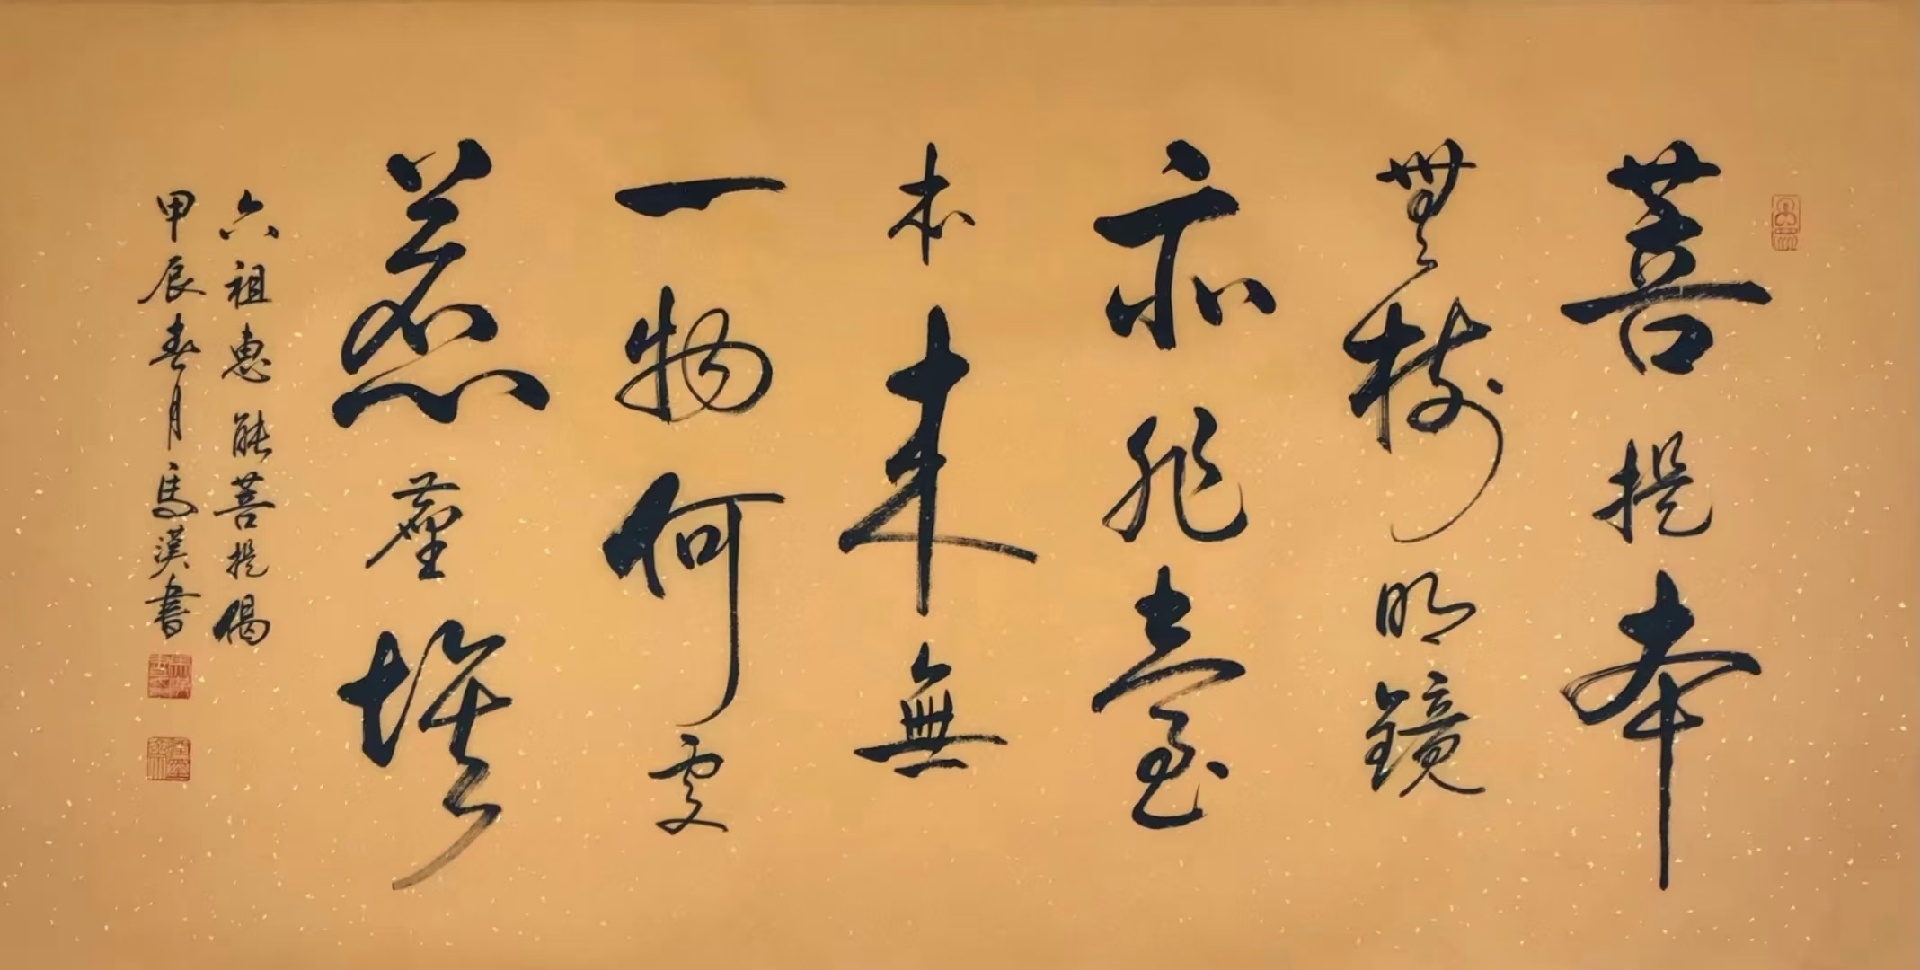 菩提本
無樹明鏡
亦非臺
本来無
一物何處
惹塵埃
六祖惠能菩提偈
甲辰春月馬漢書